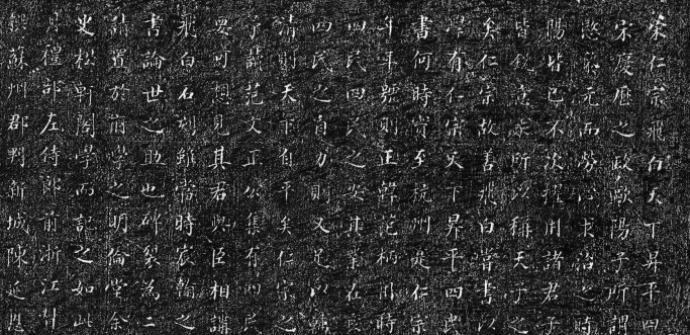 仁宗飛白天下昇平四
宋慶歷之政歐陽子所謂
元而勞心求治之時
陽皆已不次擢用諸君子
皆銳意求所以稱天子之
矣仁宗故善飛白嘗書以
學有仁宗天下昇平四民
書何時至杭州是仁宗
年年號則正韓范柄用時
四民四民之安其業在
四民之自力則又足以
清則天下自平矣仁宗之
予讀范文正公集有
要可想見其君與臣相講
飛白石刻雖當時宸翰之
書論世之助也碑裂為二
置於府學之明倫堂余
史松軒閣學而記之如此
月禮部左侍郎前浙江督
蘇州郡判新城陳延恩